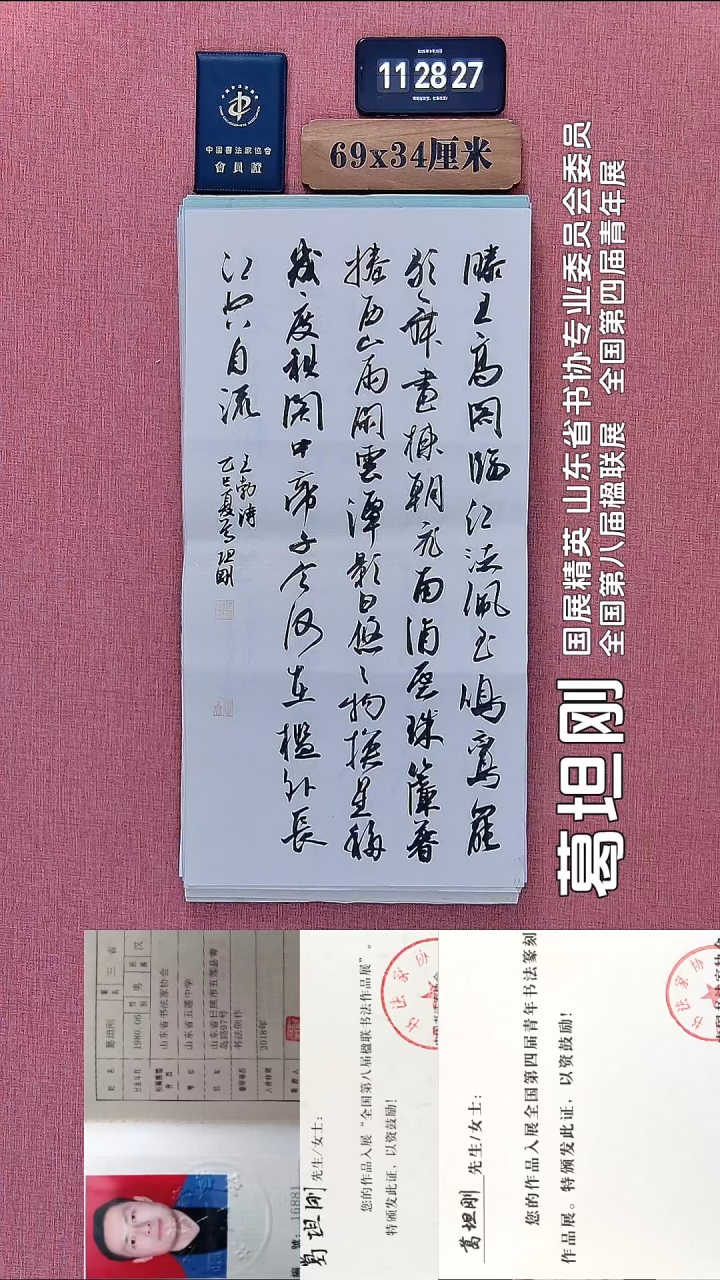 中國書法家協會
會員證
11 28 27
69x34厘米
滕王高閣臨江渚佩玉鳴鸞罷
歌舞畫棟朝飛南浦雲珠簾暮
捲西山雨閑雲潭影日悠〻物换星移
幾度秋閣中帝子今何在檻外長
江空自流
王勃诗
乙巳夏葛坦刚
国展精英 山东省书协专业委员会委员
全国第八届楹联展 全国第四届青年展
葛坦刚
姓 名 葛坦刚
1980.06 性别 男 民族 汉
山东省书法家协会
山东省五莲中学
山东省日照市五莲县青
岛路97号
书法创作
2018年
編 號: 16881
葛坦刚 先生/女士:
您的作品入展“全国第八届楹联书法作品展”。
特颁发此证，以资鼓励!
葛坦刚 先生/女士:
您的作品入展全国第四届青年书法篆刻
作品展。特颁发此证，以资鼓励!